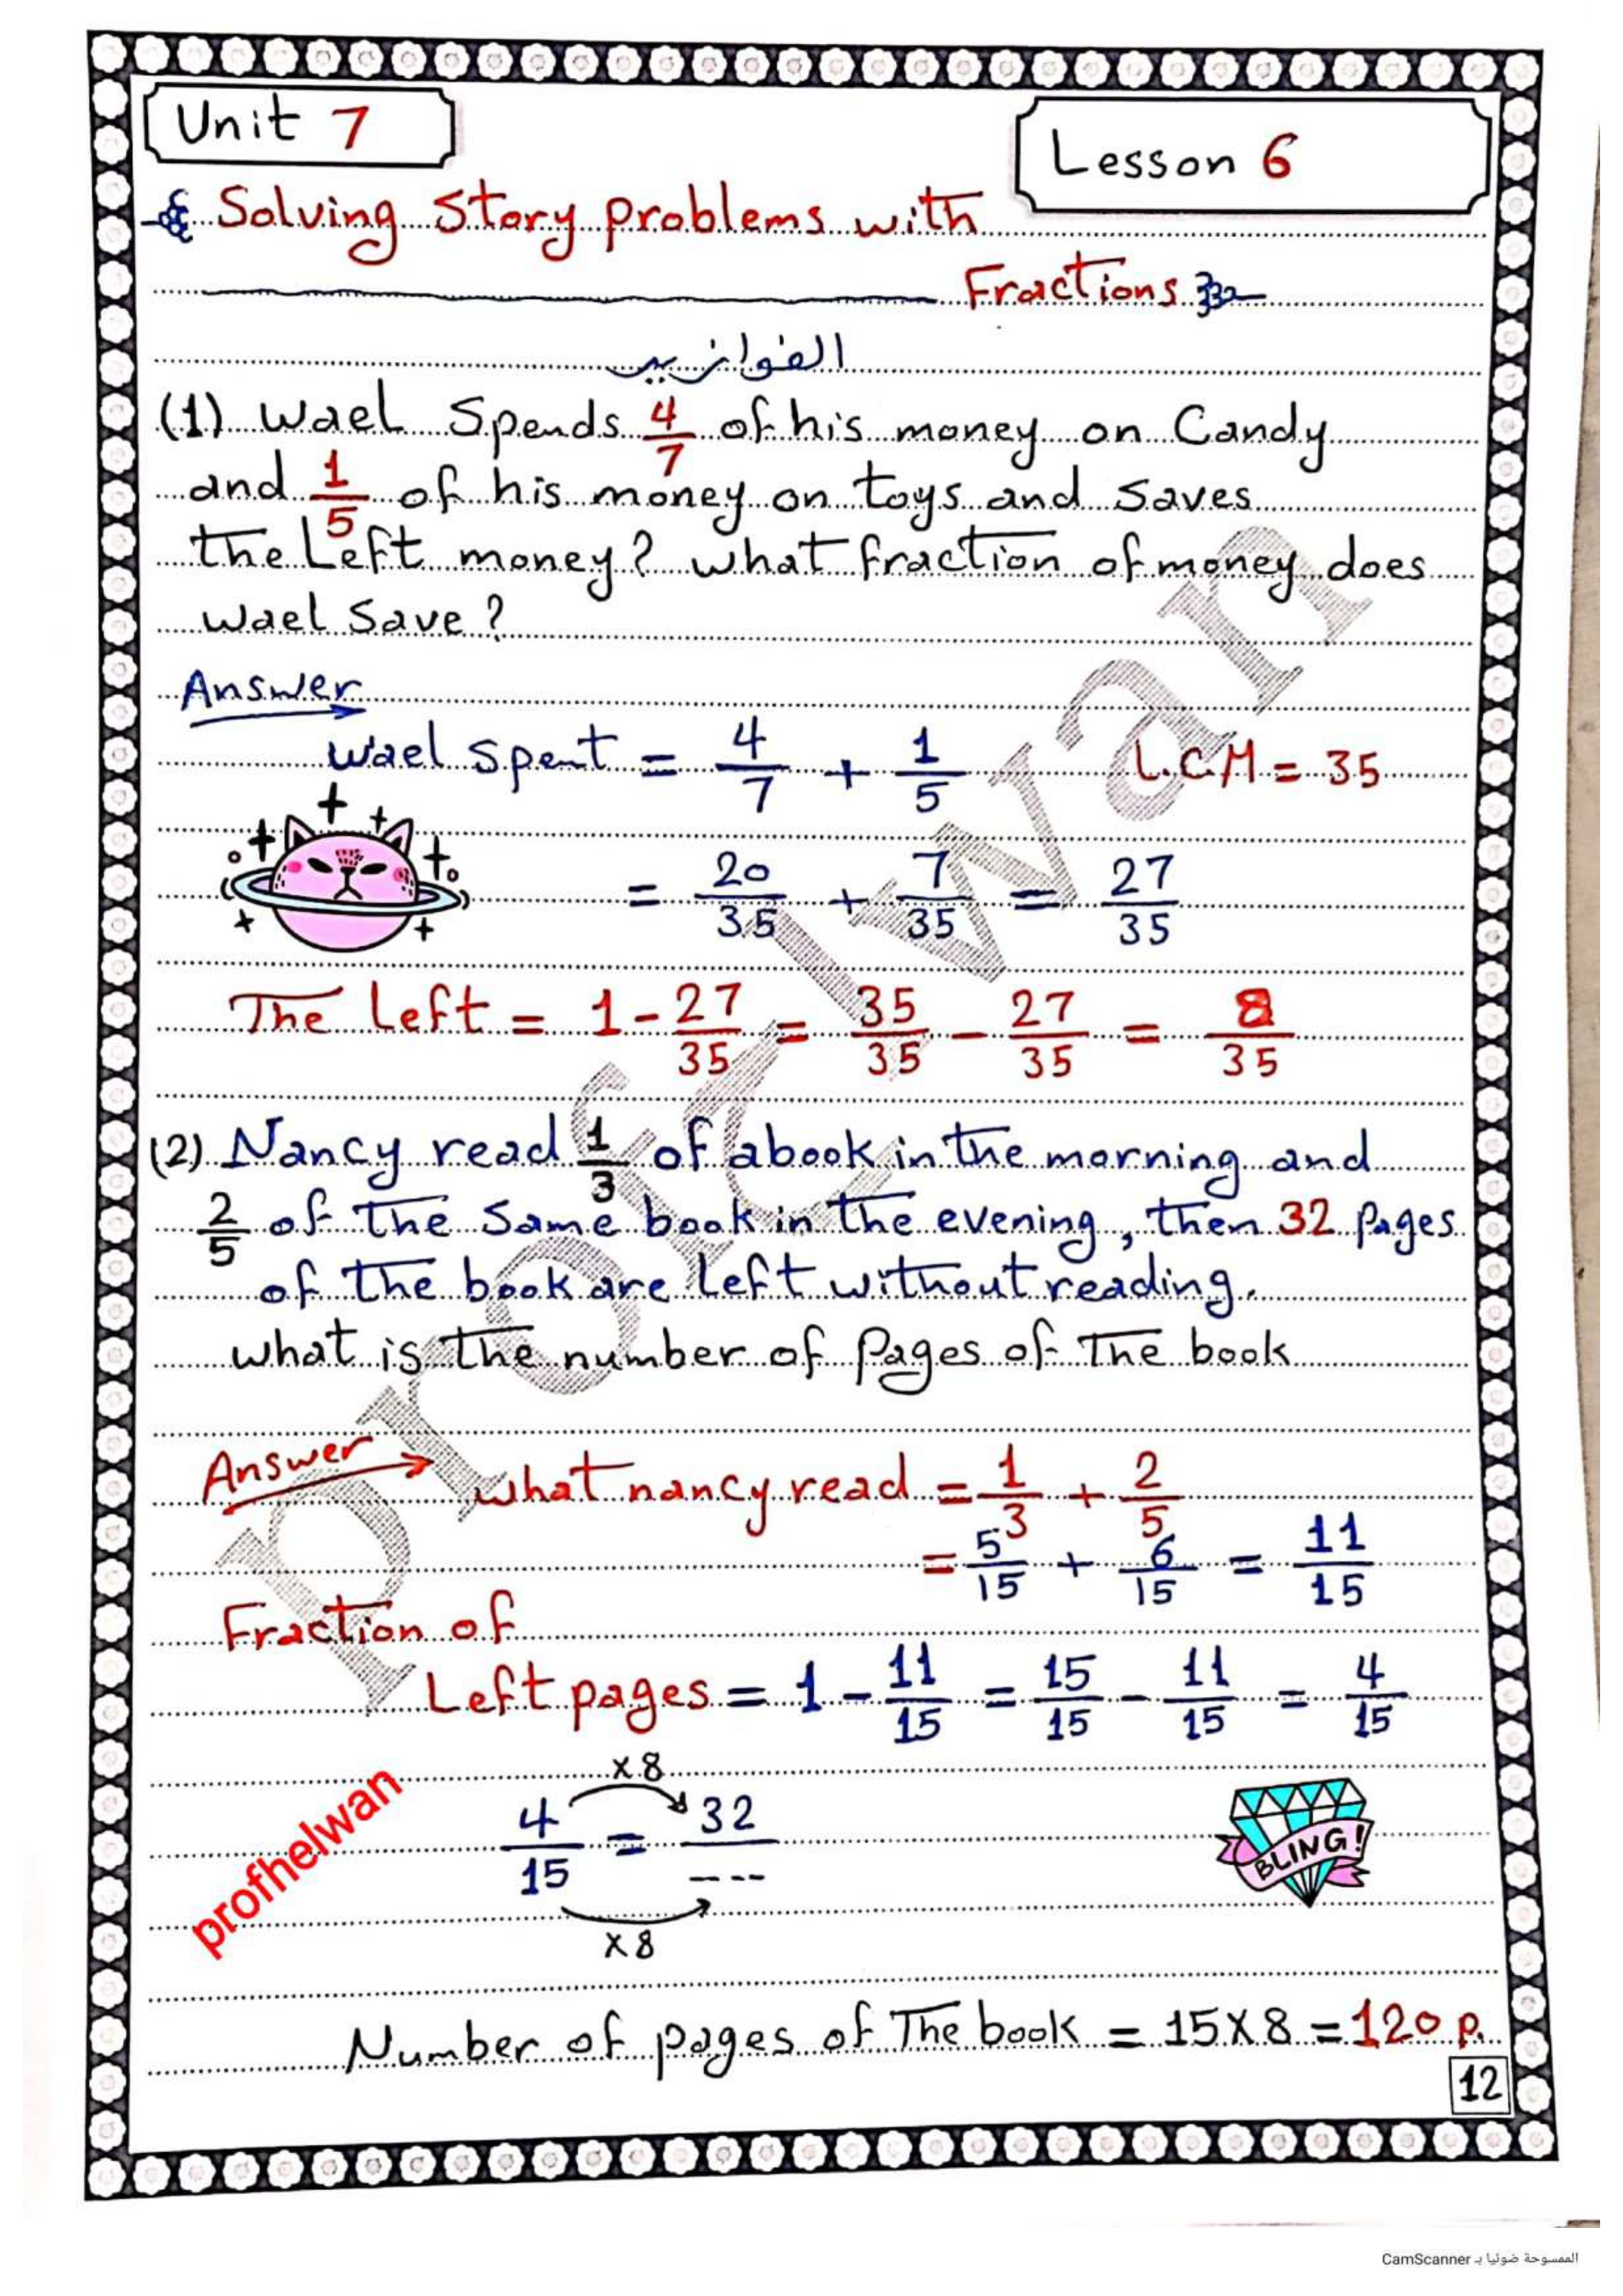 Unit 7
Lesson 6
Solving Story problems with
Fractions
الفوازير
(1) Wael Spends 4/7 of his money on Candy
and 1/5 of his money on toys and saves
the Left money? what fraction of money does
Wael Save?
Answer
Wael Spent = 4/7 + 1/5 L.C.M = 35
= 20/35 + 7/35 = 27/35
The Left = 1 - 27/35 = 35/35 - 27/35 = 8/35
(2) Nancy read 1/3 of a book in the morning and
2/5 of the Same book in the evening, then 32 Pages
of the book are left without reading.
what is the number of Pages of The book
Answer
what nancy read = 1/3 + 2/5
= 5/15 + 6/15 = 11/15
Fraction of
Left pages = 1 - 11/15 = 15/15 - 11/15 = 4/15
x 8
4/15 = 32/---
x 8
profhelwan
BLING!
Number of pages of The book = 15 x 8 = 120 p.
12
profhelwan
الممسوحة ضوئيا بـ CamScanner